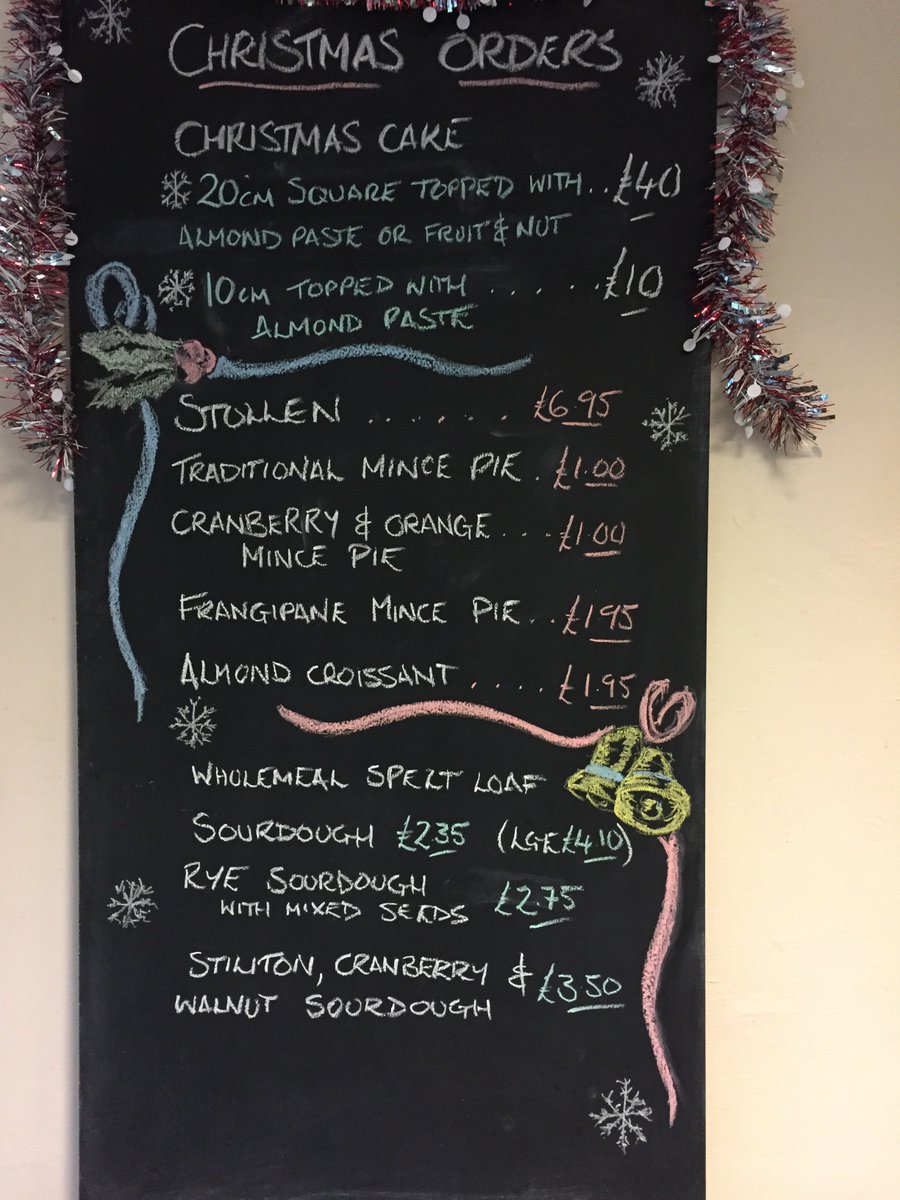 CHRISTMAS ORDERS
CHRISTMAS CAKE
20CM SQUARE TOPPED WITH.. £40
ALMOND PASTE OR FRUIT & NUT
10CM TOPPED WITH ...... £10
ALMOND PASTE
STOLLEN ....... £6.95
TRADITIONAL MINCE PIE . £1.00
CRANBERRY & ORANGE ... £1.00
MINCE PIE
FRANGIPANE MINCE PIE .. £1.95
ALMOND CROISSANT ..... £1.95
WHOLEMEAL SPELT LOAF
SOURDOUGH £2.35 (LGE £4.10)
RYE SOURDOUGH
WITH MIXED SEEDS £2.75
STILTON, CRANBERRY & £3.50
WALNUT SOURDOUGH